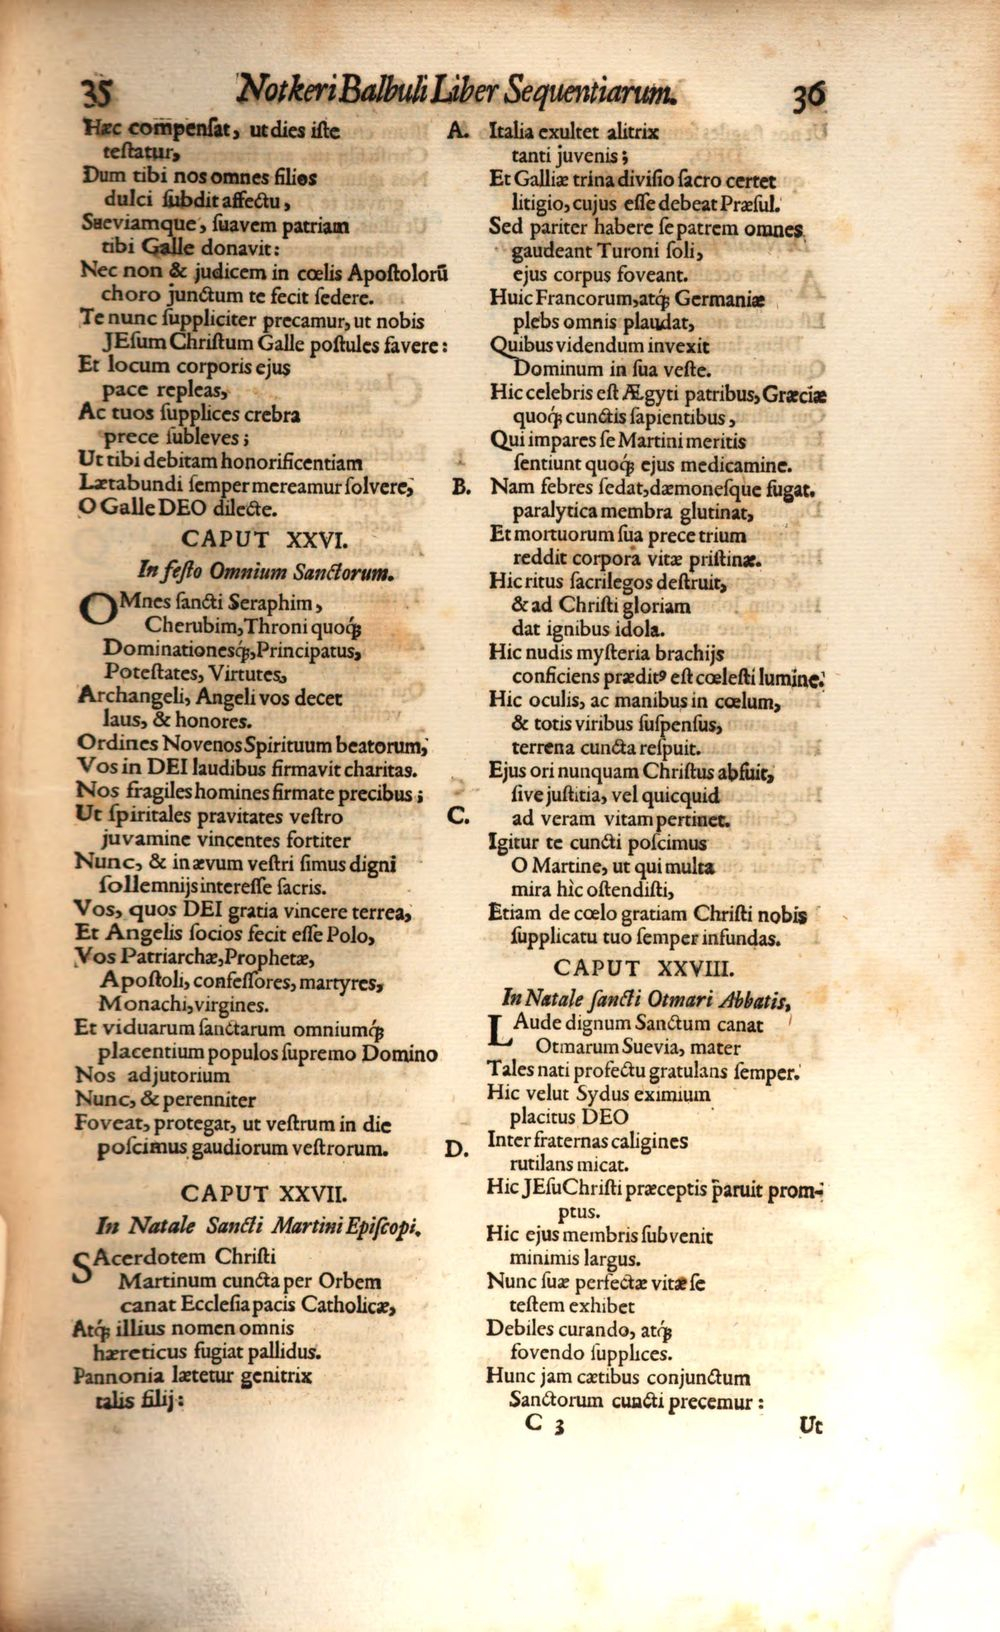 35 Notkeri Balbuli Liber Sequentiarum. 36
Hæc compensat, ut dies iste
testatur,
Dum tibi nos omnes filios
dulci subdit affectu,
Sueviamque, suavem patriam
tibi Galle donavit:
Nec non & judicem in cœlis Apostolorū
choro junctum te fecit sedere.
Te nunc suppliciter precamur, ut nobis
JEsum Christum Galle postules favere:
Et locum corporis ejus
pace repleas,
Ac tuos supplices crebra
prece subleves;
Ut tibi debitam honorificentiam
Lætabundi semper mereamur solvere,
O Galle DEO dilecte.
CAPUT XXVI.
In festo Omnium Sanctorum.
OMnes sancti Seraphim,
Cherubim, Throni quoq́;
Dominationesq́;, Principatus,
Potestates, Virtutes,
Archangeli, Angeli vos decet
laus, & honores.
Ordines Novenos Spirituum beatorum,
Vos in DEI laudibus firmavit charitas.
Nos fragiles homines firmate precibus;
Ut spiritales pravitates vestro
juvamine vincentes fortiter
Nunc, & in ævum vestri simus digni
sollemnijs interesse sacris.
Vos, quos DEI gratia vincere terrea,
Et Angelis socios fecit esse Polo,
Vos Patriarchæ, Prophetæ,
Apostoli, confessores, martyres,
Monachi, virgines.
Et viduarum sanctarum omniumq́;
placentium populos supremo Domino
Nos adjutorium
Nunc, & perenniter
Foveat, protegat, ut vestrum in die
poscimus gaudiorum vestrorum.
CAPUT XXVII.
In Natale Sancti Martini Episcopi.
SAcerdotem Christi
Martinum cuncta per Orbem
canat Ecclesia pacis Catholicæ,
Atq́; illius nomen omnis
hæreticus fugiat pallidus.
Pannonia lætetur genitrix
talis filij:
A. Italia exultet alitrix
tanti juvenis;
Et Galliæ trina divisio sacro certet
litigio, cujus esse debeat Præsul.
Sed pariter habere se patrem omnes
gaudeant Turoni soli,
ejus corpus foveant.
Huic Francorum, atq́; Germaniæ
plebs omnis plaudat,
Quibus videndum invexit
Dominum in sua veste.
Hic celebris est Ægyti patribus, Græciæ
quoq́; cunctis sapientibus,
Qui impares se Martini meritis
sentiunt quoq́; ejus medicamine.
B. Nam febres sedat, dæmonesque fugat.
paralytica membra glutinat,
Et mortuorum sua prece trium
reddit corpora vitæ pristinæ.
Hic ritus sacrilegos destruit,
& ad Christi gloriam
dat ignibus idola.
Hic nudis mysteria brachijs
conficiens præditꝰ est cœlesti lumine.
Hic oculis, ac manibus in cœlum,
& totis viribus suspensus,
terrena cuncta respuit.
Ejus ori nunquam Christus absuit,
sive justitia, vel quicquid
C. ad veram vitam pertinet.
Igitur te cuncti poscimus
O Martine, ut qui multa
mira hìc ostendisti,
Etiam de cœlo gratiam Christi nobis
supplicatu tuo semper infundas.
CAPUT XXVIII.
In Natale sancti Otmari Abbatis,
LAude dignum Sanctum canat
Otmarum Suevia, mater
Tales nati profectu gratulans semper.
Hic velut Sydus eximium
placitus DEO
D. Inter fraternas caligines
rutilans micat.
Hic JEsu Christi præceptis paruit prom-
ptus.
Hic ejus membris subvenit
minimis largus.
Nunc suæ perfectæ vitæ se
testem exhibet
Debiles curando, atq́;
fovendo supplices.
Hunc jam cætibus conjunctum
Sanctorum cuncti precemur:
C 3 Ut